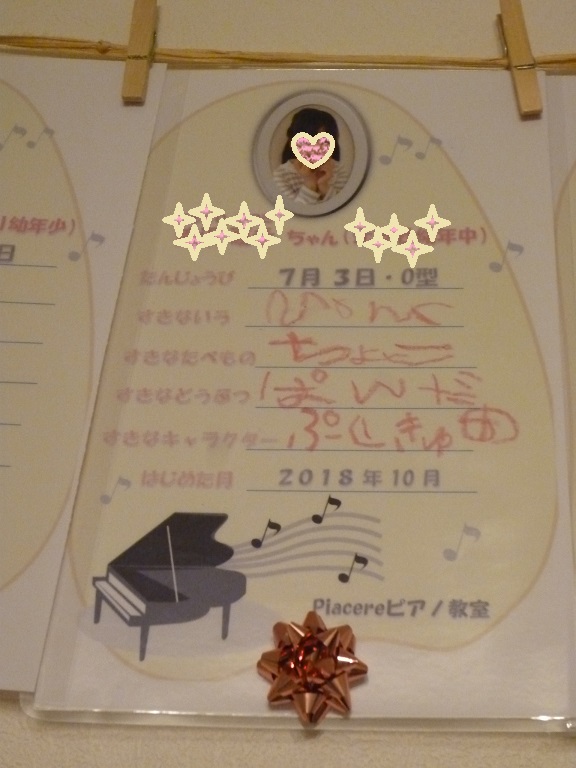 ちゃん(
年中)
たんじょうび 7月 3日・O型
すきないろ ぴんく
すきなたべもの ちょこ
すきなどうぶつ ぱんだ
すきなキャラクター ぷりきゅあ
はじめた月 2018年10月
Piacereピアノ教室
幼年少)
日